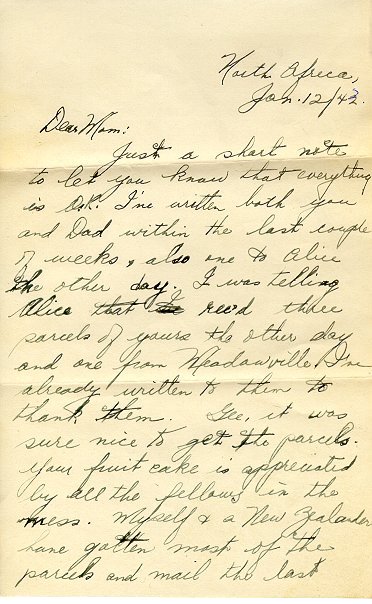 North Africa,
Jan. 12/43.
Dear Mom:
Just a short note
to let you know that everything
is O.K. I've written both you
and Dad within the last couple
of weeks, also one to Alice
the other day. I was telling
Alice that I rec'd three
parcels of yours the other day
and one from Meadowville. I've
already written to them to
thank them. Gee, it was
sure nice to get the parcels.
Your fruit cake is appreciated
by all the fellows in the
mess. Myself & a New Zealander
have gotten most of the
parcels and mail the last